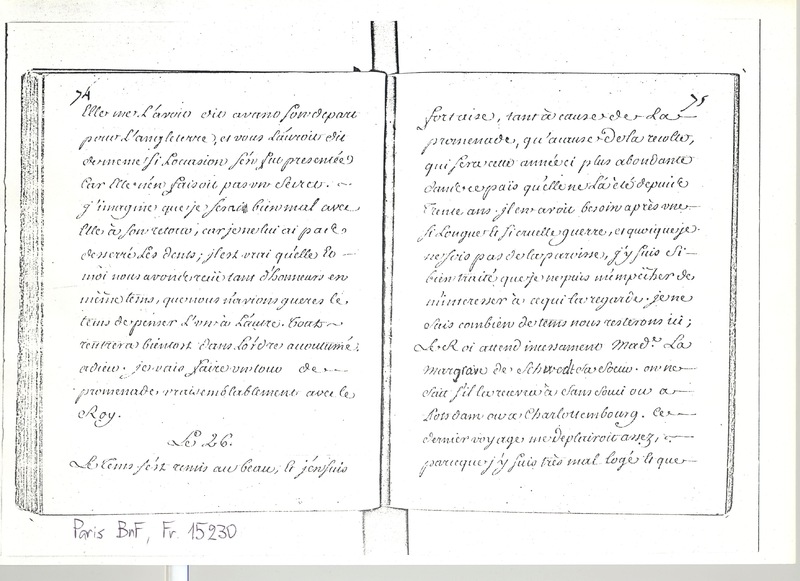 74
Elle me l'avoit dit avant son depart
pour L'angleterre, et vous L'auroit dit
de meme si Loccasion s'en fut presentée
Car Elle n'en faisoit pas un Secret.
j'imagine que je serai bien mal avec
Elle à son retour, car je ne lui ai pas
desserré Les dents; il est vrai qu'elle Et
moi nous avons receu tant d'honneurs en
même tems, que nous n'avions gueres le
tems de penser L'un à L'autre. Tout
rentrera bientost dans L'ordre accoutumé.
adieu. je vais faire un tour de
promenade vraisemblablement avec le
Roy.
Le 26.
Le tems s'est remis au beau, et j'en suis
75
fort aise, tant à cause de La
promenade, qu'acause de la recolte,
qui sera cette année ci plus abondante
dans ce païs qu'elle ne L'a été depuis
trente ans. il en avoit besoin après une
si Longue et si cruelle guerre, et quoique je
ne sois pas de la paroisse, j'y suis si
bien traité que je ne puis m'empêcher de
m'interesser à ce qui la regarde. je ne
sais combien de tems nous resterons ici;
Le Roi attend incessament Mad.e La
margrave de Schwedt sa Soeur. on ne
sait s'il la recevra à Sans Souci ou a
Potsdam ou a Charlottembourg. Ce
dernier voyage me deplairoit assez,
parceque j'y suis très mal logé et que
Paris BnF, Fr. 15230